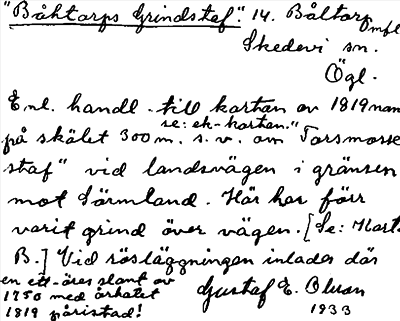 "Båktorps Grindstaf". 14. Båltorp mfl
Skedevi sn.
Ögl.
Enl. handl. till kartan av 1819 namn
se: ek-kartan."
på skälet 300 m. s. v. om Torsmosse
staf" vid landsvägen i gränsen
mot Sörmland. Här har förr
varit grind över vägen. [Se: Kart.
B.] Vid rösläggningen inlades där
en ett-öres slant av
1750 med årtalet
1819 påristad!
Gustaf E. Olson
1933